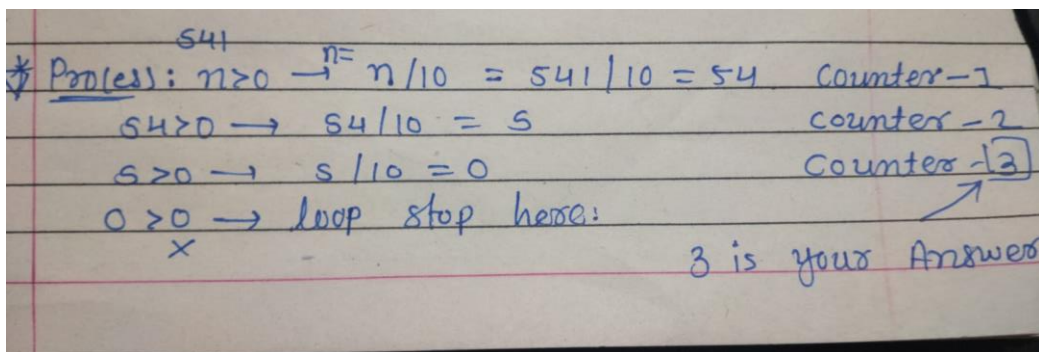 541
* Process: n>0 → n= n/10 = 541/10 = 54 Counter-1
54>0 → 54/10 = 5 counter-2
5>0 → 5/10 = 0 Counter-3
0>0 → loop stop here:
×
3 is your Answer